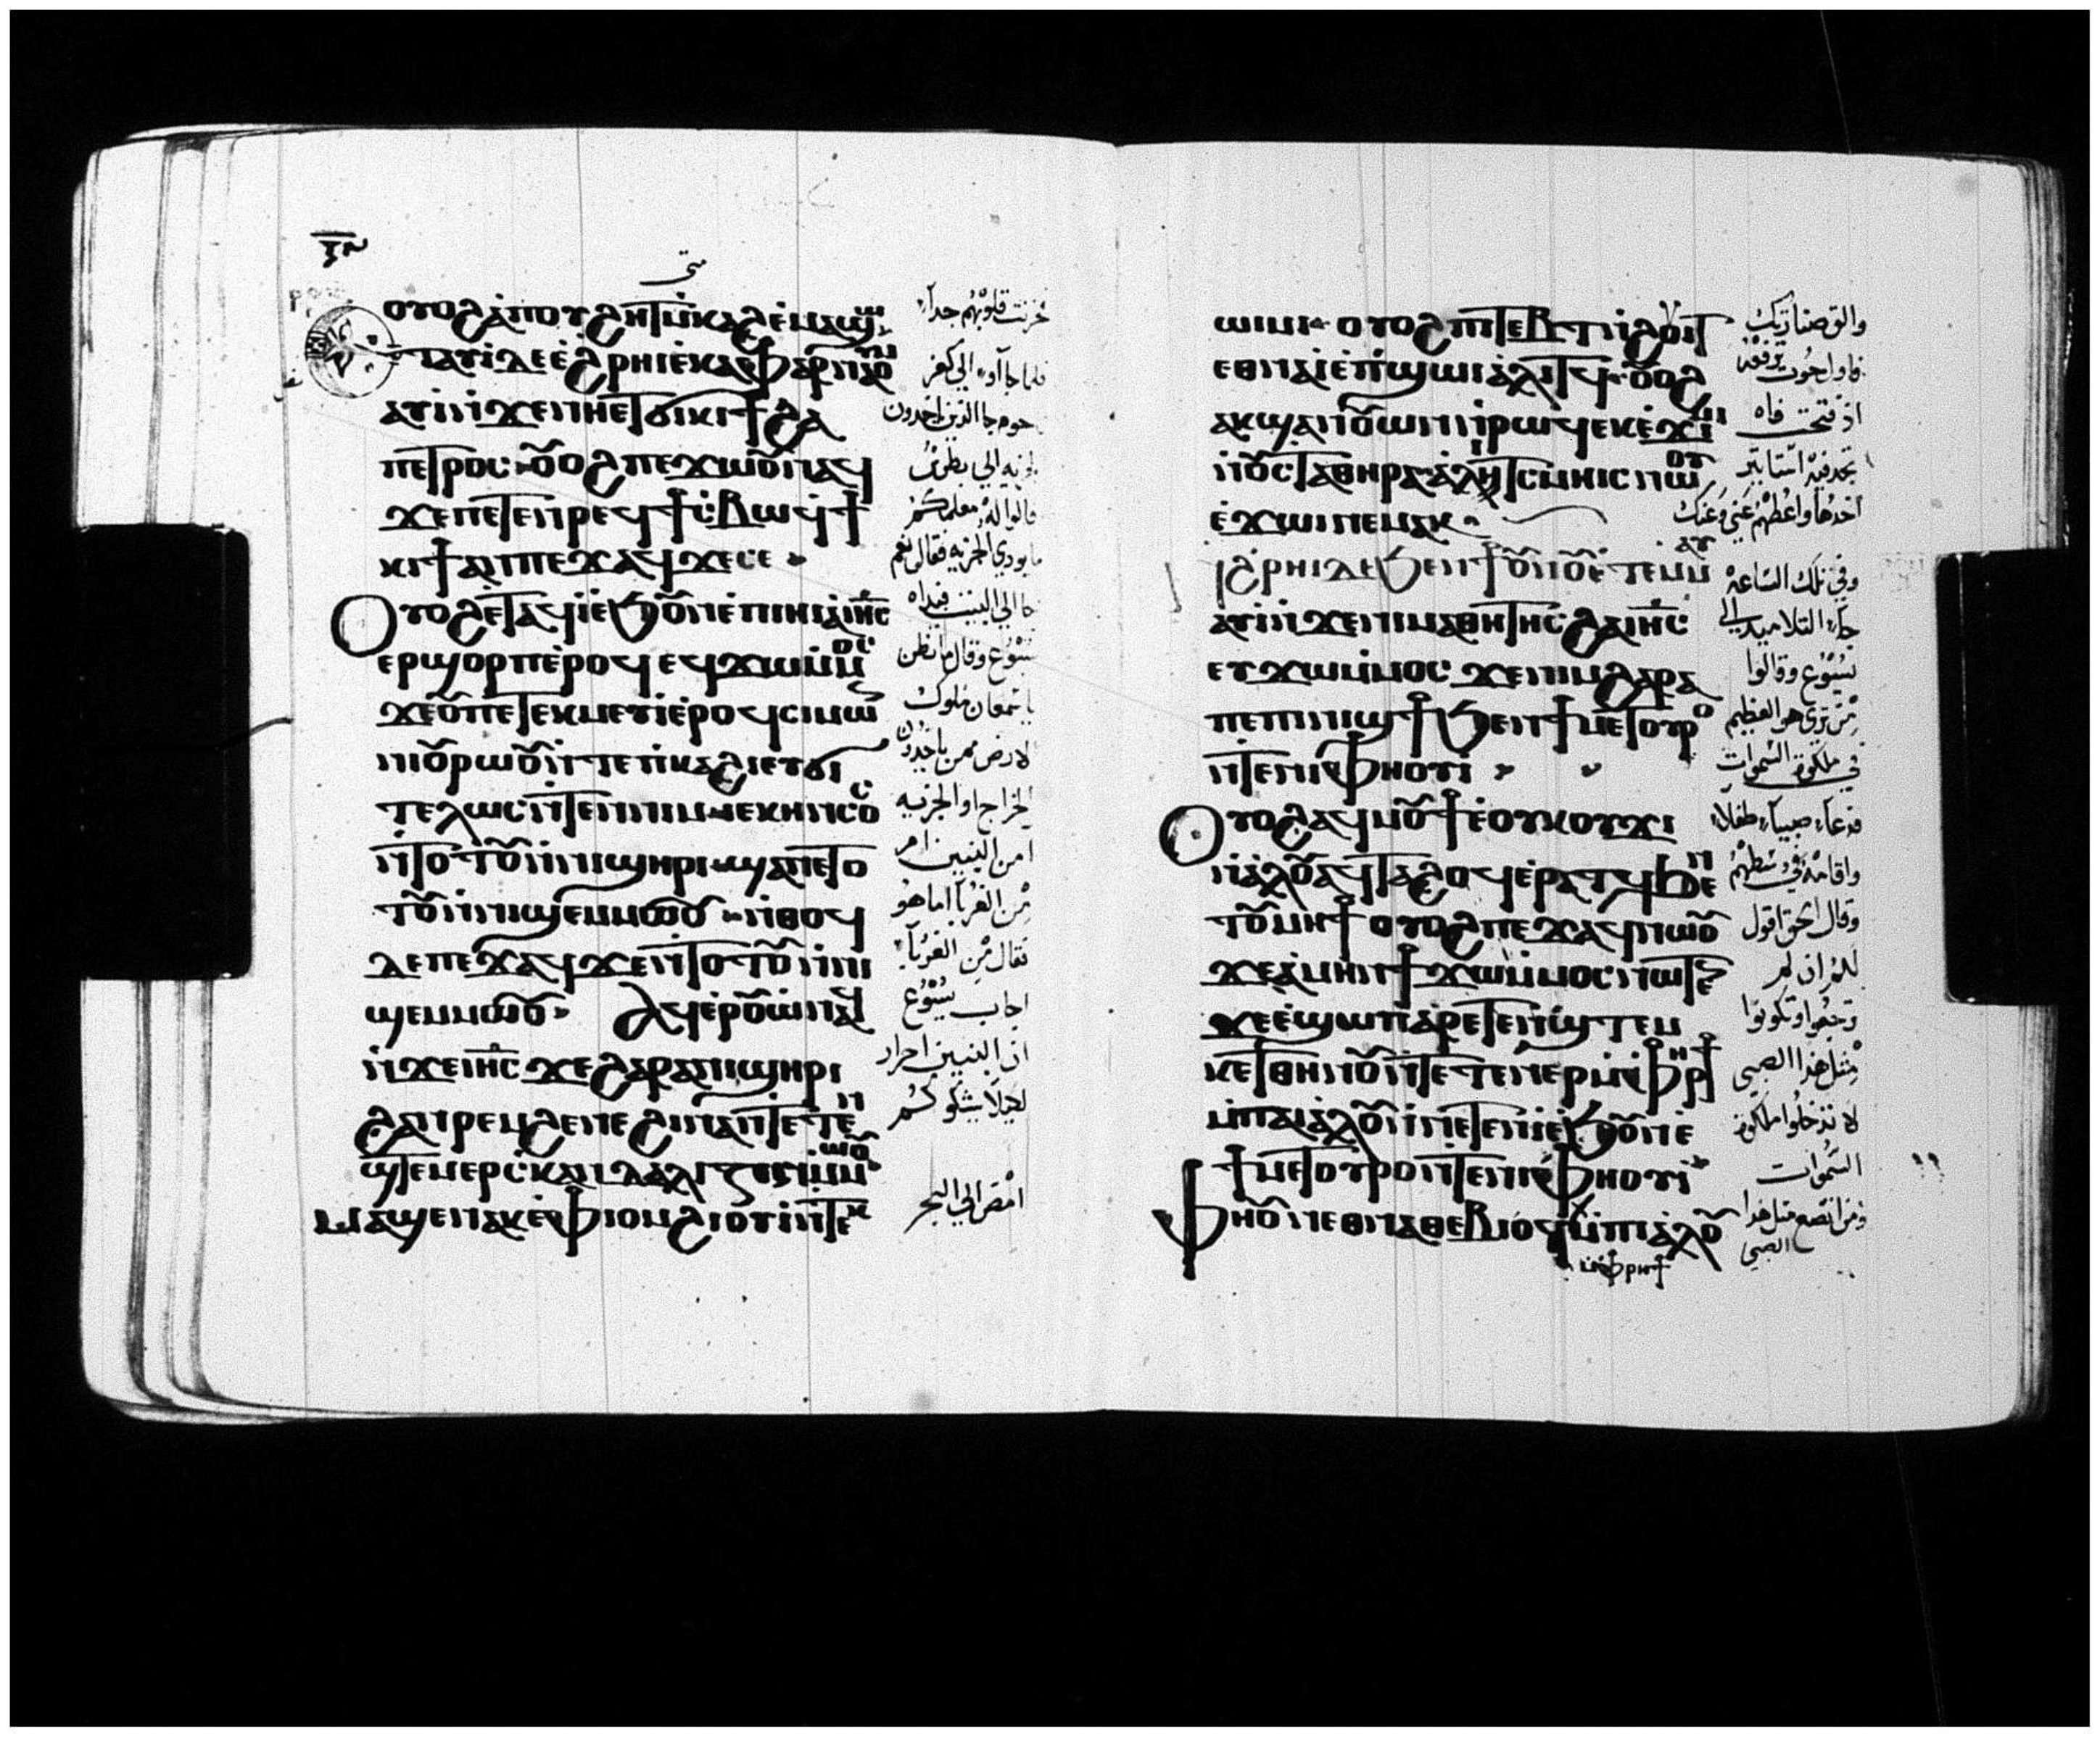 متى
ⲟⲩⲟϩ ⲁ̀ ⲡⲟⲩϩⲏⲧ ⲙ̀ⲕⲁϩ ⲉ̀ⲙⲁϣⲱ
ⲉⲧⲁⲩⲓ̀ ⲇⲉ ⲉ̀ϩⲣⲏⲓ ⲉ̀ⲕⲁⲫⲁⲣⲛⲁⲟⲩⲙ
ⲁⲩⲓ̀ ⲛ̀ϫⲉ ⲛⲏⲉⲧϭⲓ ⲕⲓϯ ϩⲁ
ⲡⲉⲧⲣⲟⲥ ⲟⲩⲟϩ ⲡⲉϫⲱⲟⲩ ⲛⲁϥ
ϫⲉ ⲡⲉⲧⲉⲛⲣⲉϥϯⲥⲃⲱ ϥϯ
ⲕⲓϯ ⲁⲛ ⲡⲉϫⲁϥ ϫⲉ ⲥⲉ
ⲟⲩⲟϩ ⲉ̀ⲧⲁϥⲓ̀ ⲉ̀ϧⲟⲩⲛ ⲉ̀ⲡⲓⲏⲓ ⲁ̀ ⲓⲏⲥ
ⲉⲣϣⲟⲣⲡ ⲉ̀ⲣⲟϥ ⲉϥϫⲱ ⲙ̀ⲙⲟⲥ
ϫⲉ ⲟⲩ ⲡⲉⲧⲉⲕⲙⲉⲩⲓ̀ ⲉ̀ⲣⲟϥ ⲥⲓⲙⲱⲛ
ⲛⲓⲟⲩⲣⲱⲟⲩ ⲛ̀ⲧⲉ ⲡ̀ⲕⲁϩⲓ ⲉⲩϭⲓ
ⲧⲉⲗⲱⲥ ⲛ̀ⲧⲉⲛ ⲛⲓⲙ ⲓⲉ ⲕⲏⲛⲥⲟⲥ
ⲛ̀ⲧⲟⲧⲟⲩ ⲛ̀ⲛⲓϣⲏⲣⲓ ϣⲁⲛ ⲛ̀ⲧⲟ
ⲧⲟⲩ ⲛ̀ⲛⲓϣⲉⲙⲙⲱⲟⲩ ⲛ̀ⲑⲟϥ
ⲇⲉ ⲡⲉϫⲁϥ ϫⲉ ⲛ̀ⲧⲟⲧⲟⲩ ⲛ̀ⲛⲓ
ϣⲉⲙⲙⲱⲟⲩ ⲁϥⲉⲣⲟⲩⲱ̀ ⲛⲁϥ
ⲛ̀ϫⲉ ⲓⲏⲥ ϫⲉ ϩⲁⲣⲁ ⲛⲓϣⲏⲣⲓ
ϩⲁⲛⲣⲉⲙϩⲉ ⲛⲉ ϩⲓⲛⲁ ⲛ̀ⲧⲉⲛ
ϣ̀ⲧⲉⲙⲉⲣⲥ̀ⲕⲁⲛⲇⲁⲗⲓⲍⲓⲛ ⲙ̀ⲙⲱⲟⲩ
ⲙⲁϣⲉⲛⲁⲕ ⲉ̀ⲫⲓⲟⲙ ϩⲓⲟⲩⲓ̀ ⲛ̀ⲧⲉⲕ
حزنت قلوبهم جدا
فلما جاآوا الى كفر
حوم جا الذين ياخدون
الجزيه الى بطرس
قالوا له معلمكم
ما يودي الجزيه فقال نعم
جا الى البيت فبداه
يسوع وقال ما تظن
يا سمعان ملوك
الارض ممن ياخدون
الخراج او الجزيه
امن البنين ام
من الغربا اما هو
فقال من الغربا
اجاب يسوع
ان البنين احرار
لكيلا يشكوكم
امض الى البحر
ⲱⲓⲙⲓ ⲟⲩⲟϩ ⲡⲓⲧⲉⲃⲧ ⲛ̀ϩⲟⲩⲓⲧ
ⲉⲑⲛⲁⲓ̀ ⲉ̀ⲡ̀ϣⲱⲓ ⲁ̀ⲗⲓⲧϥ ⲟⲩⲟϩ
ⲁⲕϣⲁⲛⲟⲩⲱⲛ ⲛ̀ⲣⲱϥ ⲉⲕⲉ̀ϫⲓⲙⲓ
ⲛ̀ⲟⲩⲥⲧⲁⲑⲏⲣⲁ ⲁ̀ⲗⲓⲧⲥ ⲙⲏⲓⲥ ⲛⲱⲟⲩ
ⲉ̀ϫⲱⲓ ⲛⲉⲙⲁⲕ
ⲛ̀ϩⲣⲏⲓ ⲇⲉ ϧⲉⲛ ϯⲟⲩⲛⲟⲩ ⲉ̀ⲧⲉⲙⲙⲁⲩ
ⲁⲩⲓ̀ ⲛ̀ϫⲉ ⲛⲓⲙⲁⲑⲏⲧⲏⲥ ϩⲁ ⲓⲏⲥ
ⲉⲩϫⲱ ⲙ̀ⲙⲟⲥ ϫⲉ ⲛⲓⲙ ϩⲁⲣⲁ
ⲡⲉ ⲡⲓⲛⲓϣϯ ϧⲉⲛ ϯⲙⲉⲧⲟⲩⲣⲟ
ⲛ̀ⲧⲉ ⲛⲓⲫⲏⲟⲩⲓ̀
ⲟⲩⲟϩ ⲁϥⲙⲟⲩϯ ⲉ̀ⲟⲩⲕⲟⲩϫⲓ
ⲛ̀ⲁ̀ⲗⲟⲩ ⲁϥⲧⲁϩⲟϥ ⲉ̀ⲣⲁⲧϥ ϧⲉⲛ
ⲧⲟⲩⲙⲏϯ ⲟⲩⲟϩ ⲡⲉϫⲁϥ ⲛⲱⲟⲩ
ϫⲉ ⲁ̀ⲙⲏⲛ ϯϫⲱ ⲙ̀ⲙⲟⲥ ⲛⲱⲧⲉⲛ
ϫⲉ ⲉ̀ϣⲱⲡ ⲁⲣⲉⲧⲉⲛϣ̀ⲧⲉⲙ
ⲕⲉⲧ ⲑⲏⲛⲟⲩ ⲛ̀ⲧⲉⲧⲉⲛⲉⲣ ⲙ̀ⲫⲣⲏϯ
ⲙ̀ⲡⲁⲓⲁ̀ⲗⲟⲩ ⲛ̀ⲛⲉⲧⲉⲛⲓ̀ ⲉ̀ϧⲟⲩⲛ ⲉ̀
ϯⲙⲉⲧⲟⲩⲣⲟ ⲛ̀ⲧⲉ ⲛⲓⲫⲏⲟⲩⲓ̀
ⲫⲏ ⲟⲩⲛ ⲉⲑⲛⲁⲑⲉⲃⲓⲟϥ ⲙ̀ⲡⲁⲓⲁ̀ⲗⲟⲩ
ⲙ̀ⲫⲣⲏϯ
والق صنارتك
فاول حوت ترفعه
اذ فتحت فاه
تجد فيه استاتير
اخدها واعطهم عني وعنك
وفي تلك الساعه
جا التلاميد الى
يسوع وقالوا
من ترى هو العظيم
في ملكوة السموات
فدعا صبيا طفلا
واقامه في وسطهم
وقال الحق اقول
لكم ان لم
ترجعوا وتكونوا
مثل هذا الصبي
لا تدخلوا ملكوة
السموات
فمن اتضع مثل هذا
الصبي